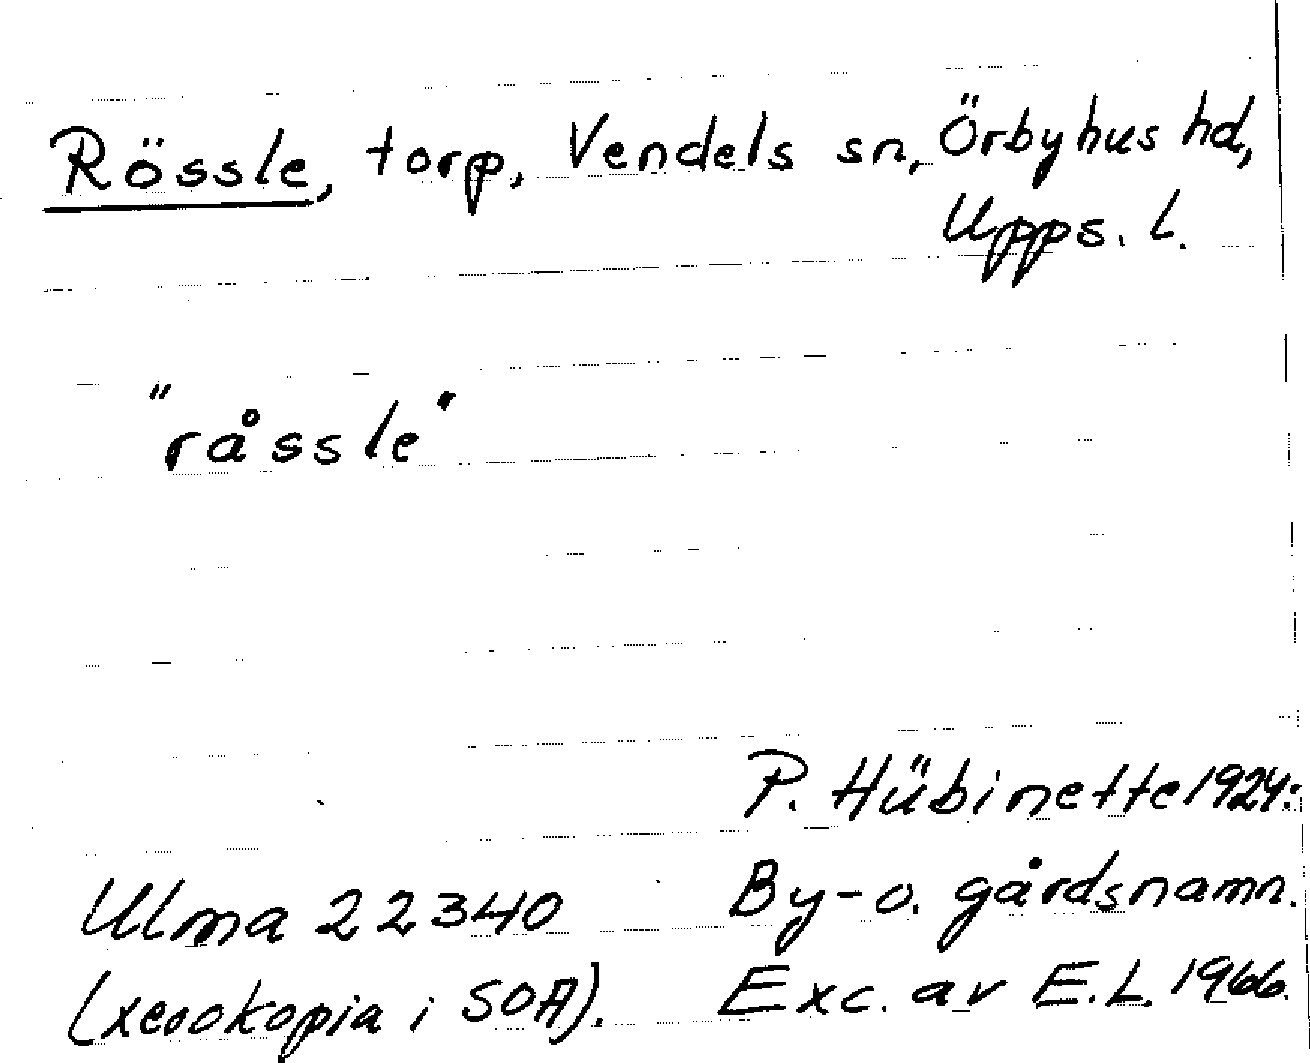 Rössle, torp, Vendels sn, Örbyhus hd,
Upps. l.
"råssle"
P. Hübinette 1924:
Ulma 22340
By- o. gårdsnamn.
(xerokopia i SOA).
Exc. av E.L. 1966.